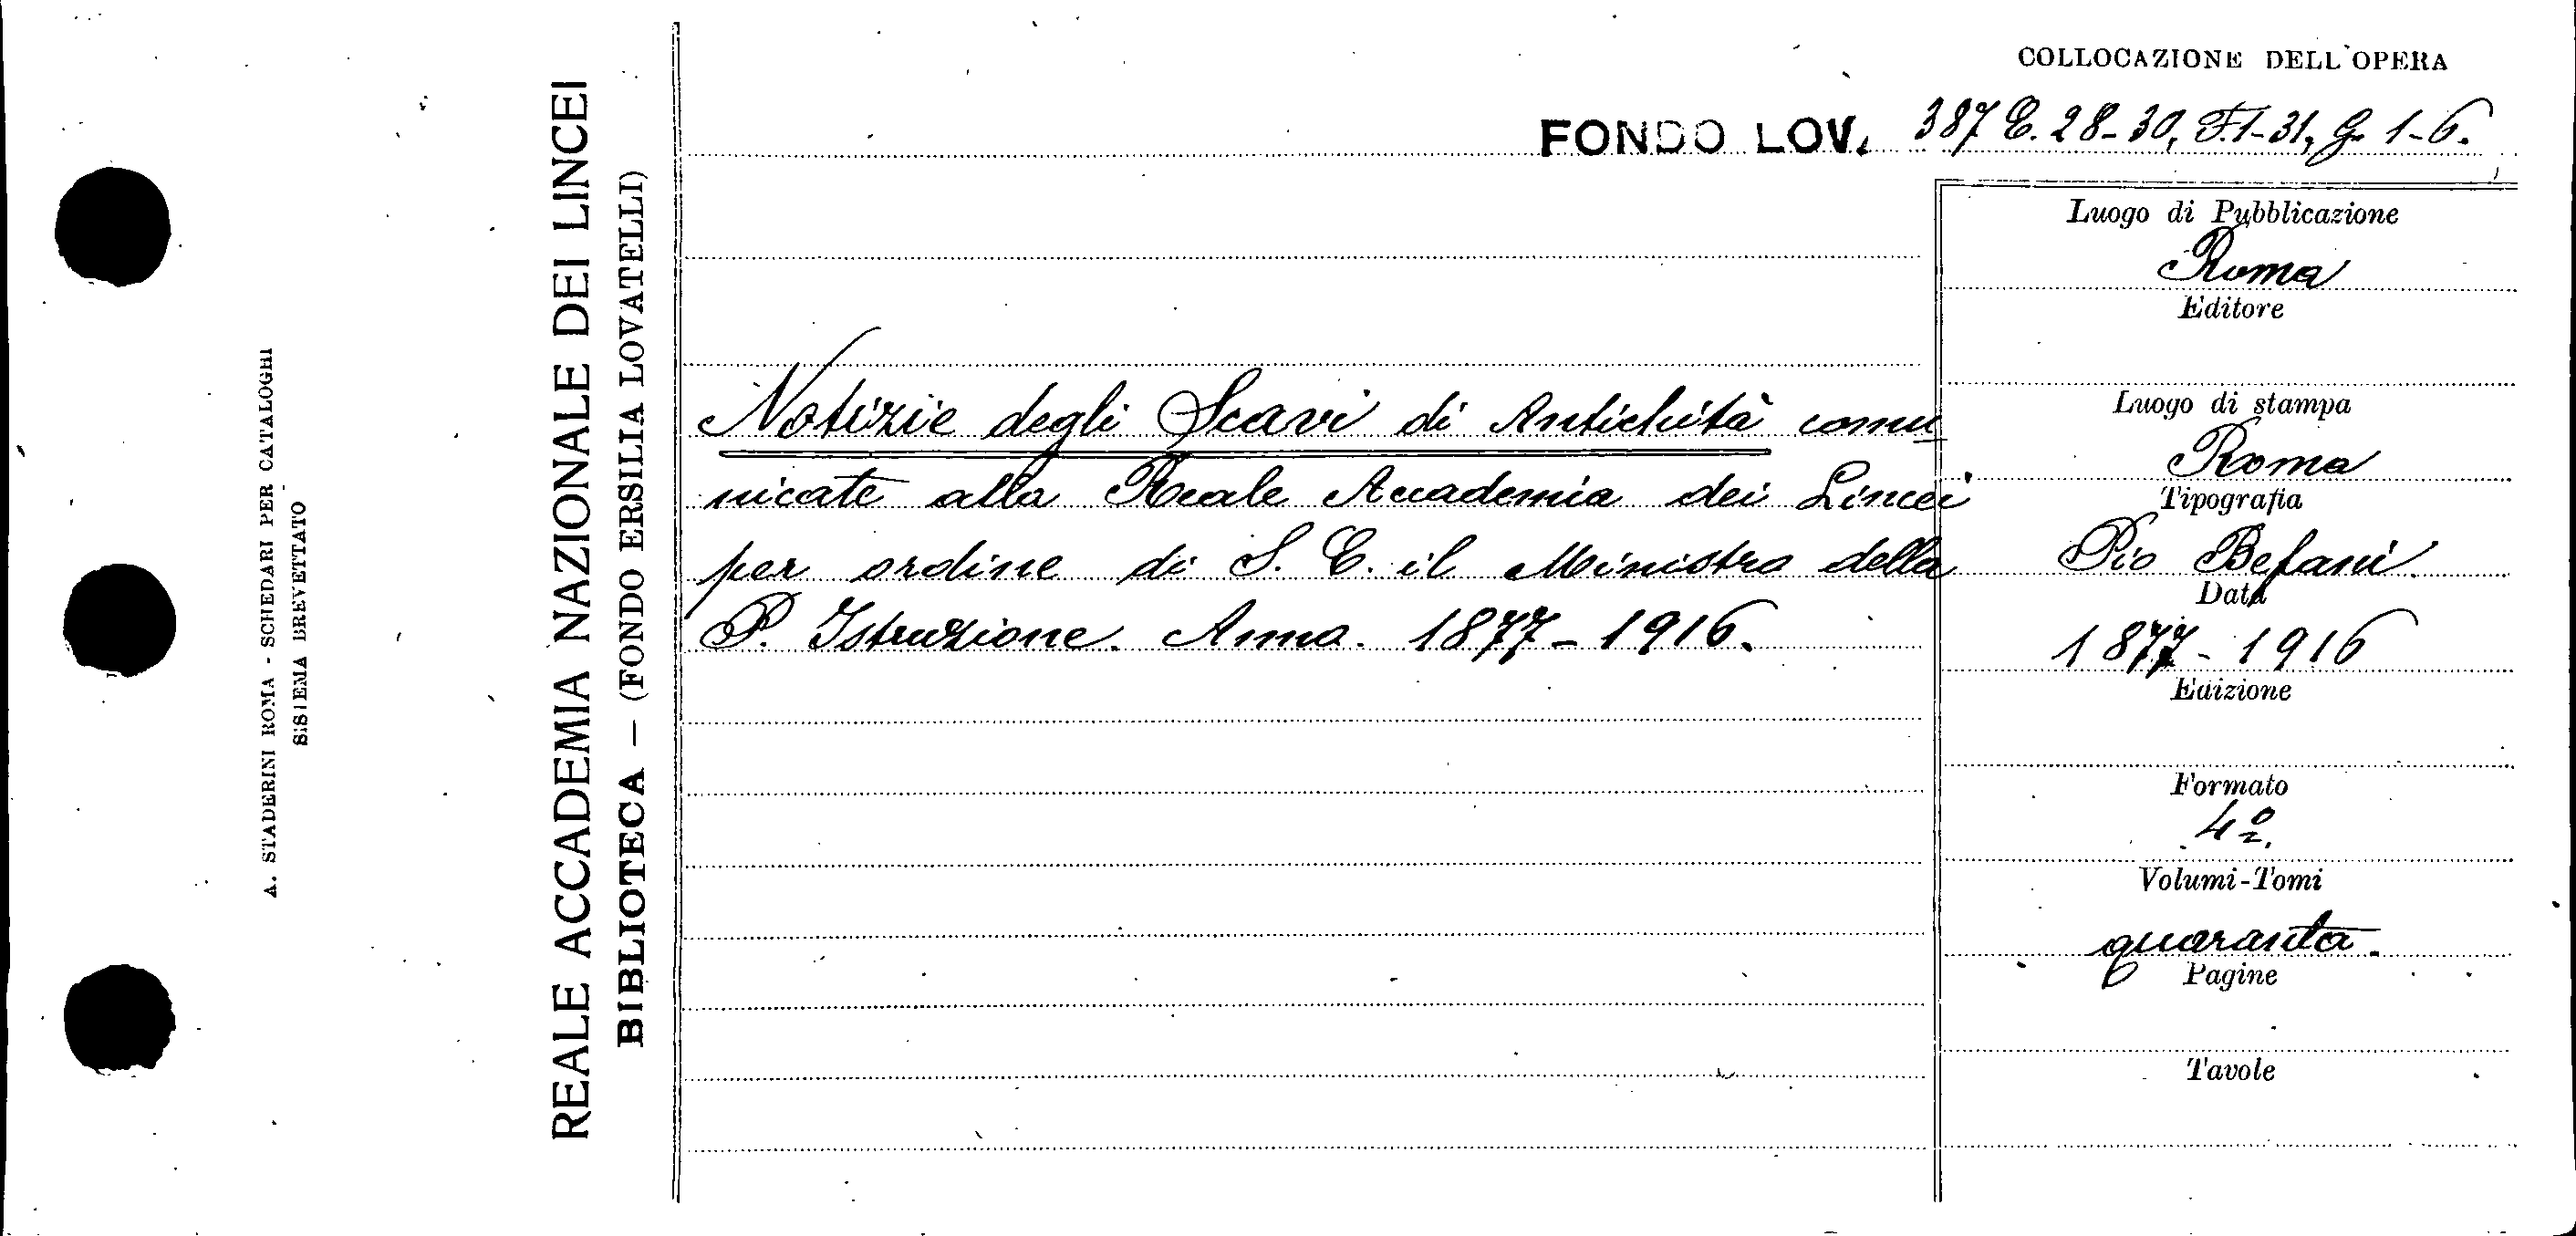 A. STADERINI ROMA - SCHEDARI PER CATALOGHI
SISTEMA BREVETTATO
REALE ACCADEMIA NAZIONALE DEI LINCEI
BIBLIOTECA — (FONDO ERSILIA LOVATELLI)
COLLOCAZIONE DELL'OPERA
FONDO LOV. 387 E. 28-30, F.1-31, G. 1-6.
Notizie degli Scavi di Antichità comu
nicate alla Reale Accademia dei Lincei
per ordine di S. E. il Ministro della
P. Istruzione. Anno. 1877-1916.
Luogo di Pubblicazione
Roma
Editore
Luogo di stampa
Roma
Tipografia
Pio Befani
Data
1877-1916
Edizione
Formato
4º.
Volumi-Tomi
quaranta.
Pagine
Tavole